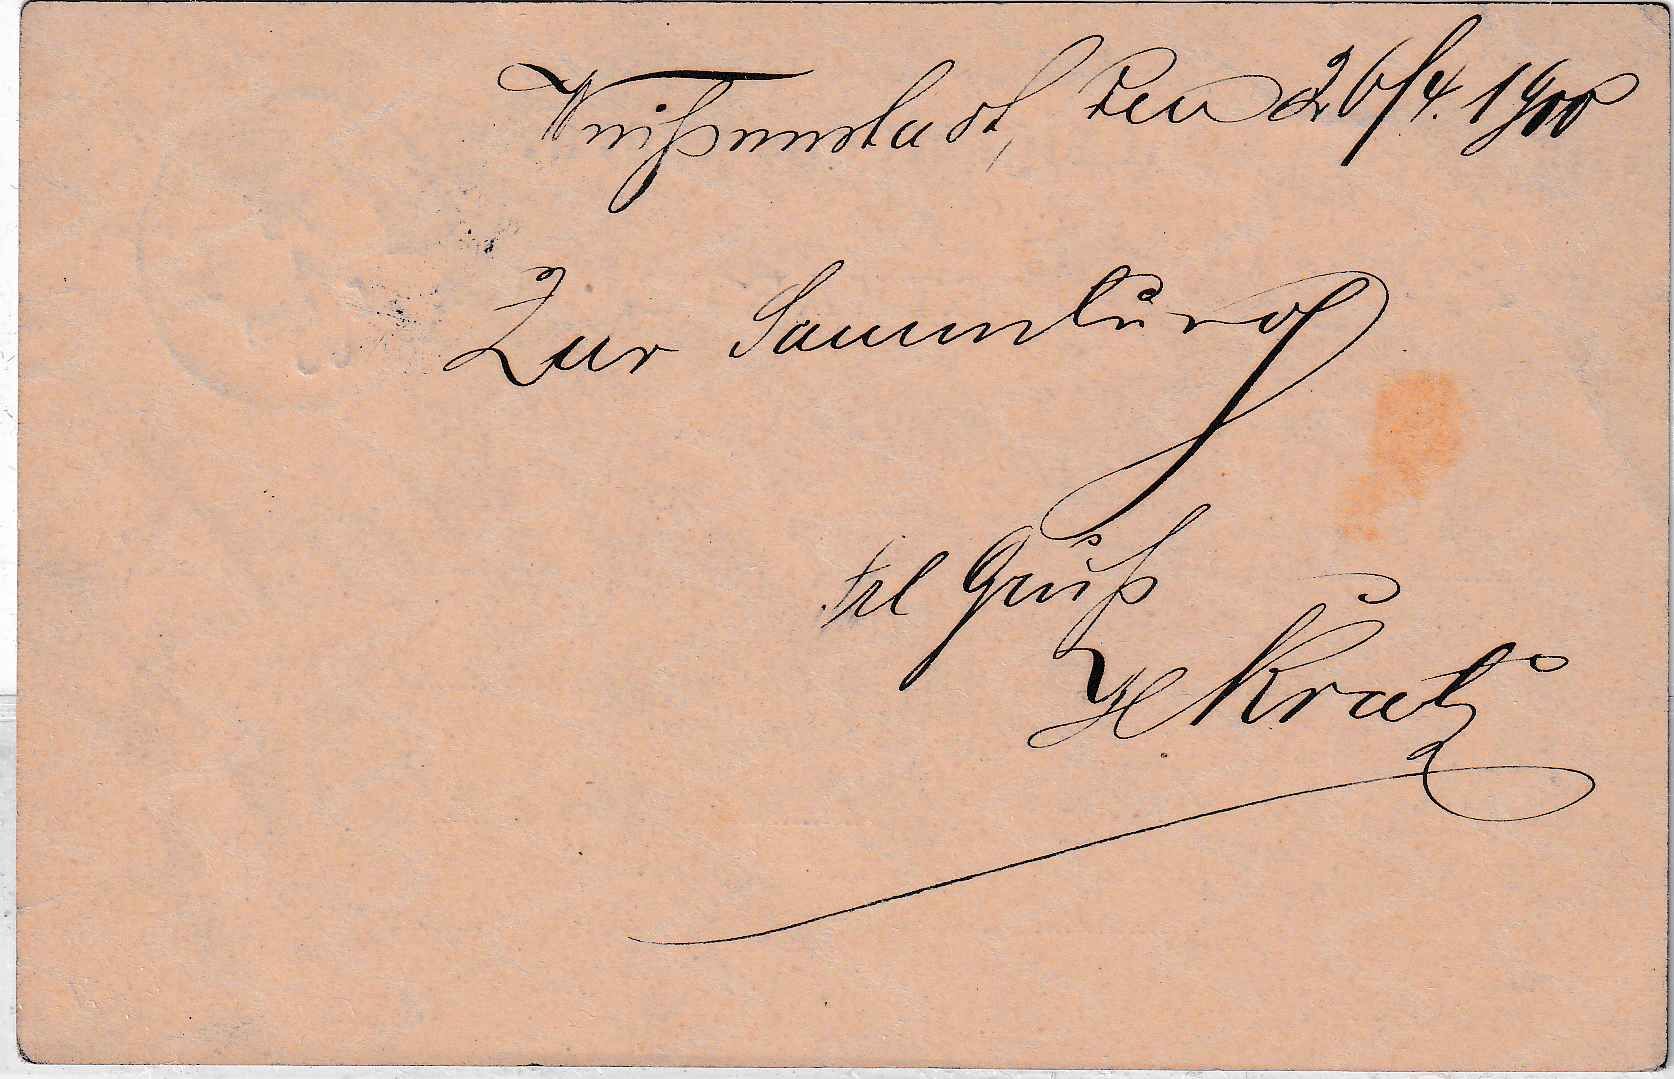 Weißenstadt, den 26/4. 1900
Zur Sammlung
frl Gruß
Kratz